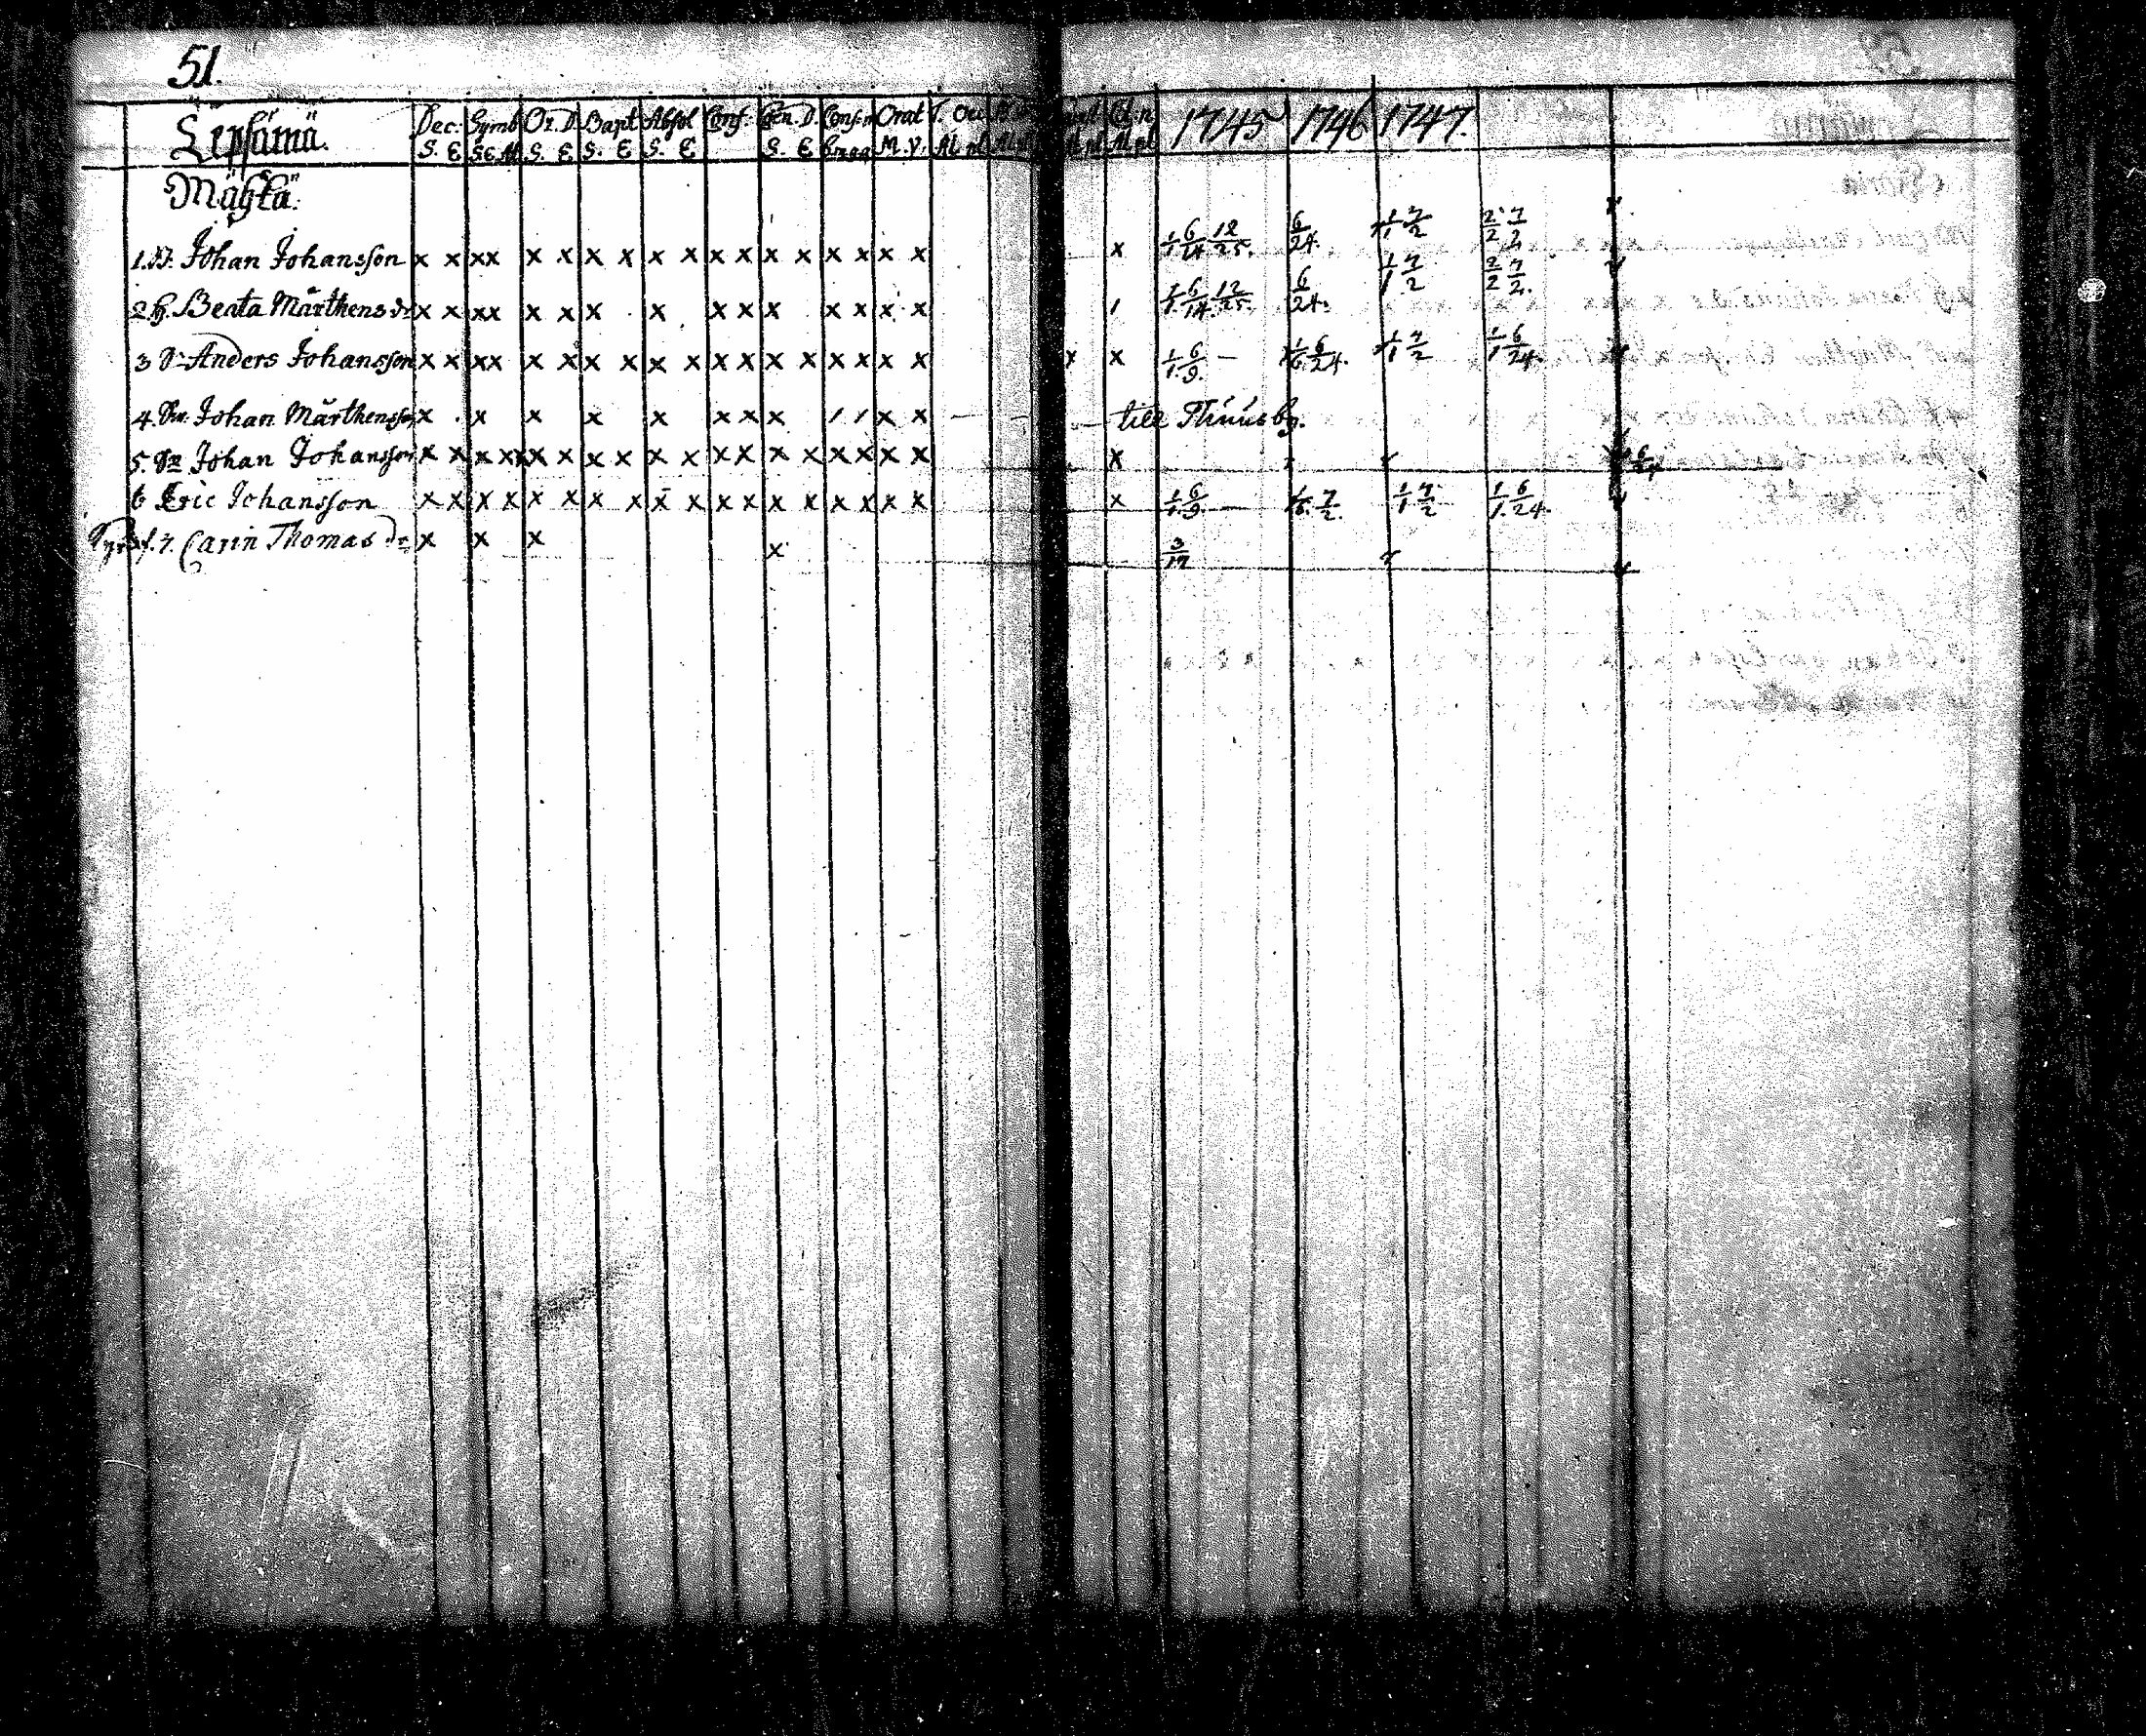 51.
Lepsämä. Dec: Symb Or. D. Bapt Absol Conf: Cœn. D. Orat 1745 1746 1747.
S. E S. E S. E S. E S. E M. V. Al. pl Al. pl
Mähkä.
1. Johan Johansson x x xx x x x x x x x x x x x x x x x 1/1 6/14 12/25. 6/24. 1/1 7/2 2/2 7/2
2. H. Beata Märthens dr x x xx x x x x x x x x x x x 1/1 6/14 12/25. 6/24. 1/1 7/2 2/2 7/2.
3 Anders Johansson x x xx x x x x x x x x x x x x x x x x 1/1 6/9. — 1/6 6/24. 1/1 7/2 1/1 6/24.
4. Johan Märthensson x x x x x x x x / / x x till
5. Johan Johansson x x x x x x x x x x x x x x x x x x x
6 Eric Johansson x x x x x x x x x x x x x x x x x x x 1/1 6/9. — 1/6. 7/2. 1/1 7/2 1/1 6/24.
7. Carin Thomas dr x x x x 3/17